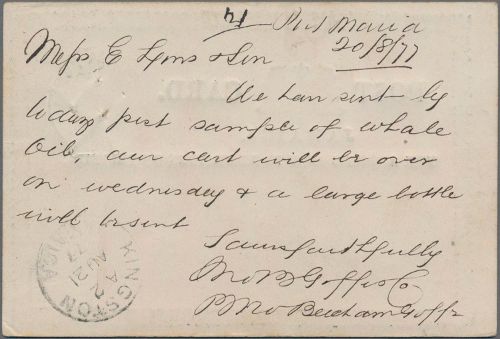 21 Port Maria
20/8/77
Messs E Lyons & Son
We have sent by
todays post sample of whale
Oil, our cart will be over
on wednesday & a large bottle
will be sent
Yours faithfully
KINGSTON
JAMAICA
A
AU 21
77